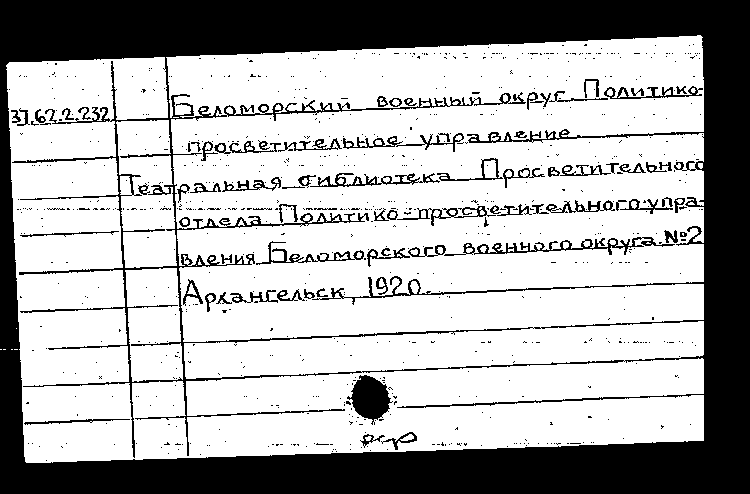 37.62.2.232 Беломорский военный округ. Политико-
просветительное управление.
Театральная библиотека Просветительного
отдела Политико-просветительного упра-
вления Беломорского военного округа. №2
Архангельск, 1920.